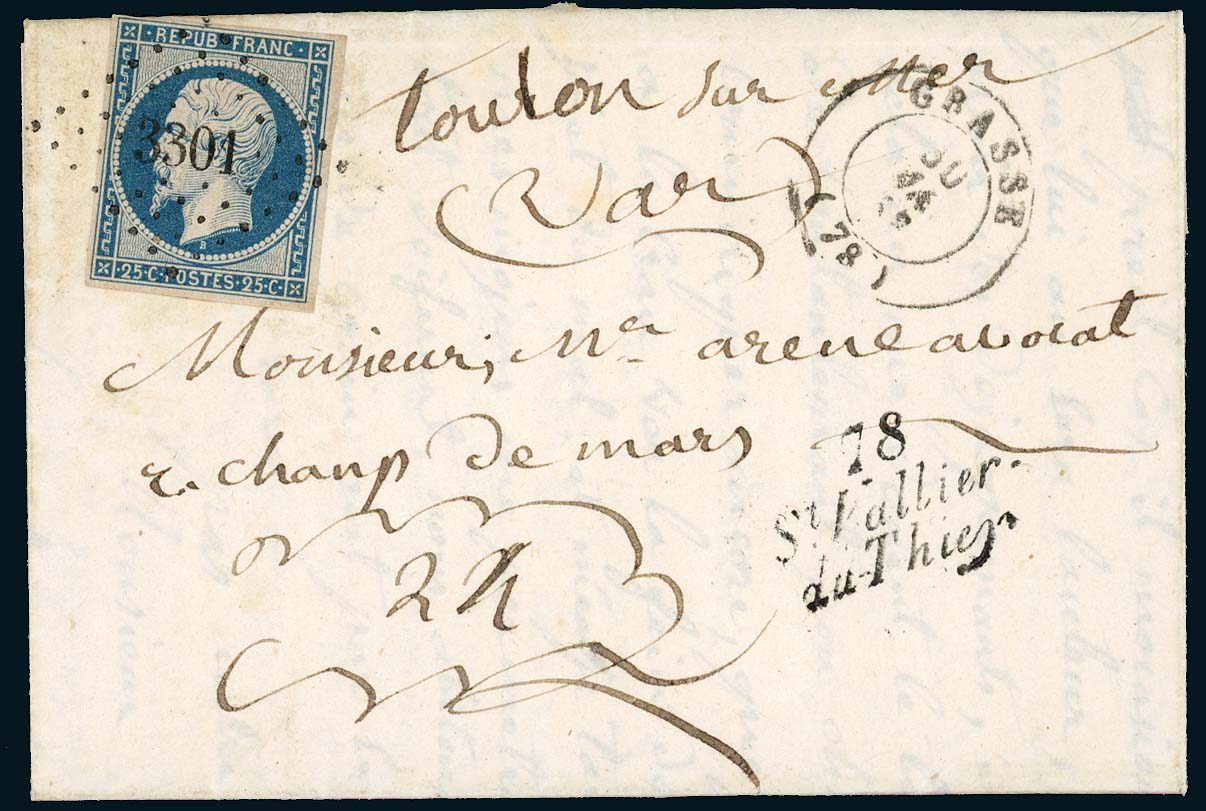 REPUB. FRANC.
3301
B
25·C·POSTES·25·C·
toulon sur mer
Var
GRASSE
30
(78)
Monsieur, Mr arene avocat
r. champ de mars
24
78
St Vallier-
du-Thiey